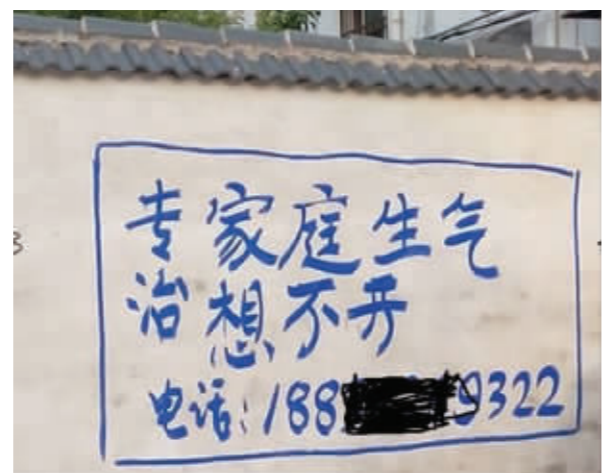 专家庭生气
治想不开
电话:188 9322